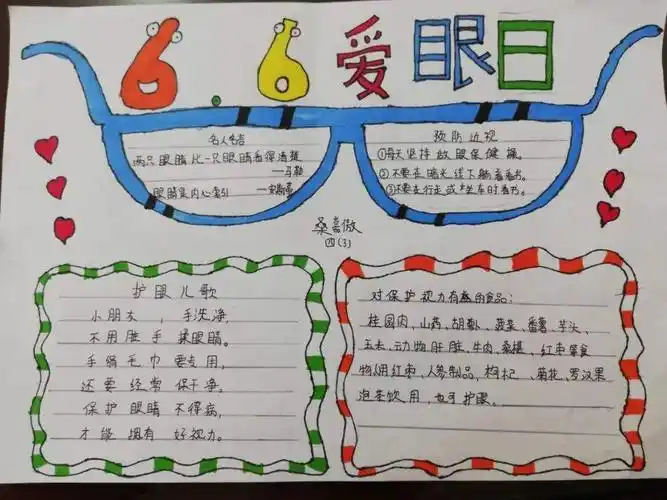 6.6爱眼日
名人名言
两只眼睛比一只眼睛看得清楚
眼睛是内心索引
预防近视
①每天坚持做眼保健操。
②不要在暗光线下躺着看书。
③不要在行走或坐车时看书。
四(3)
护眼儿歌
小朋友,手洗净,
不用脏手揉眼睛。
手绢毛巾要专用,
还要经常保干净,
保护眼睛不得病,
才能拥有好视力。
对保护视力有益的食品:
桂圆肉、山药、胡萝卜、菠菜、番薯、芋头、
动物肝脏、牛肉、桑椹、红枣等食
物,用红枣、人参制品、枸杞、菊花、罗汉果
泡茶饮用,也可护眼。